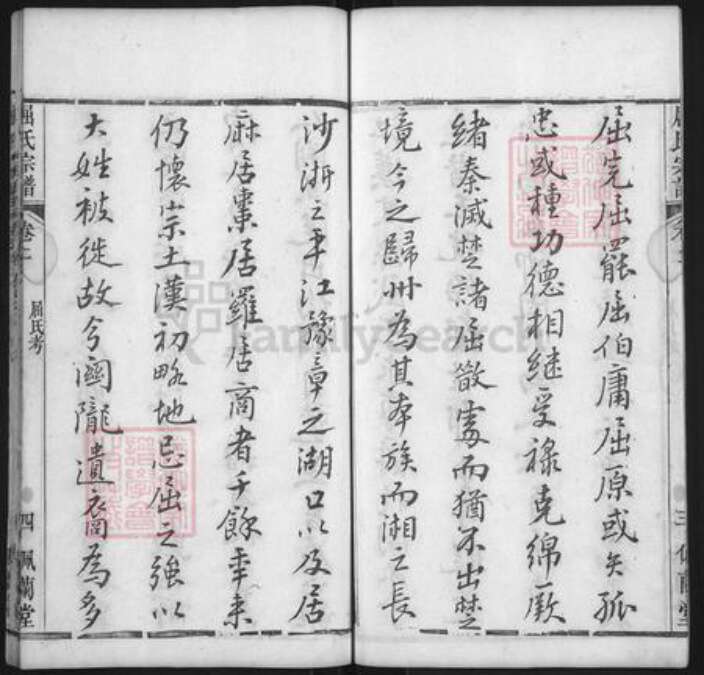 屈完屈罷屈伯庸屈原或矢孤
忠或種功德相継受祿克綿厥
緒秦滅楚諸屈散處而猶不出楚
境今之歸州為其本族而湘之長
沙浙之平江豫章之湖口以及居
麻居棗居羅居商者千餘年来
仍懷宗土漢初略地忌屈之強以
大姓被徙故今關隴遺裔為多
屈氏宗譜
卷之一
屈氏考
四
佩蘭堂
屈氏宗譜
三
佩蘭堂
FamilySearch